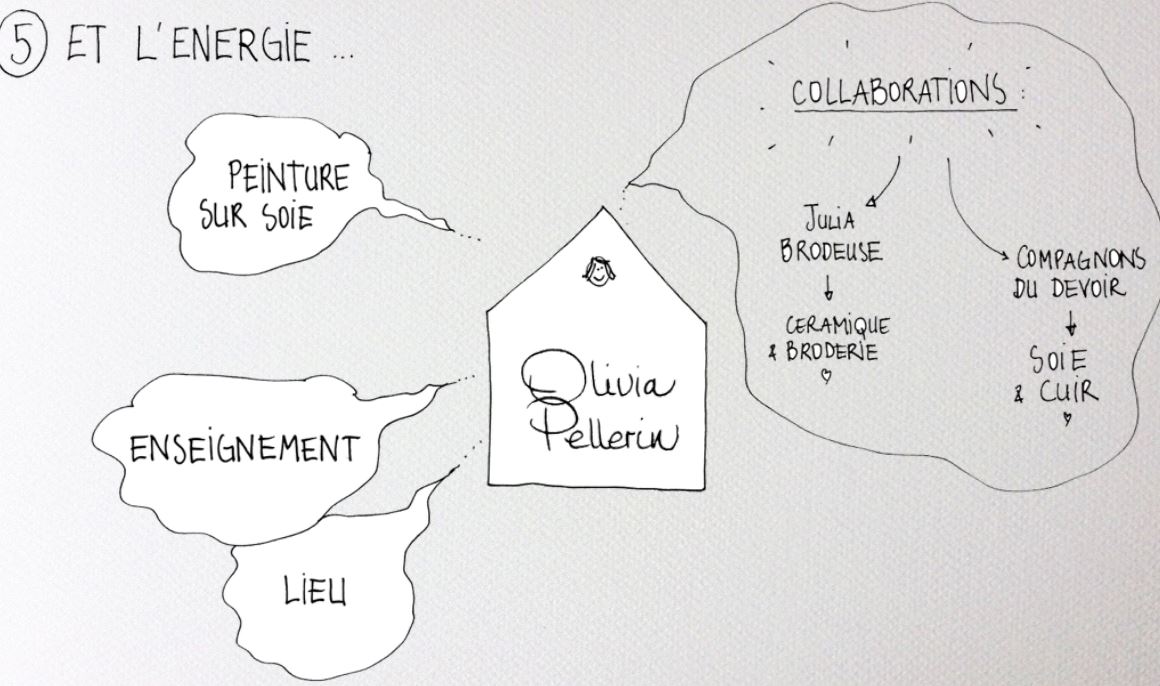 5 ET L'ENERGiE ...
PEiNTURE
SUR SOiE
ENSEiGNEMENT
LiEU
Olivia
Pellerin
COLLABORATIONS :
JULiA
BRODEUSE
CERAMiQUE
& BRODERiE
COMPAGNONS
DU DEVOiR
SOiE
& CUiR